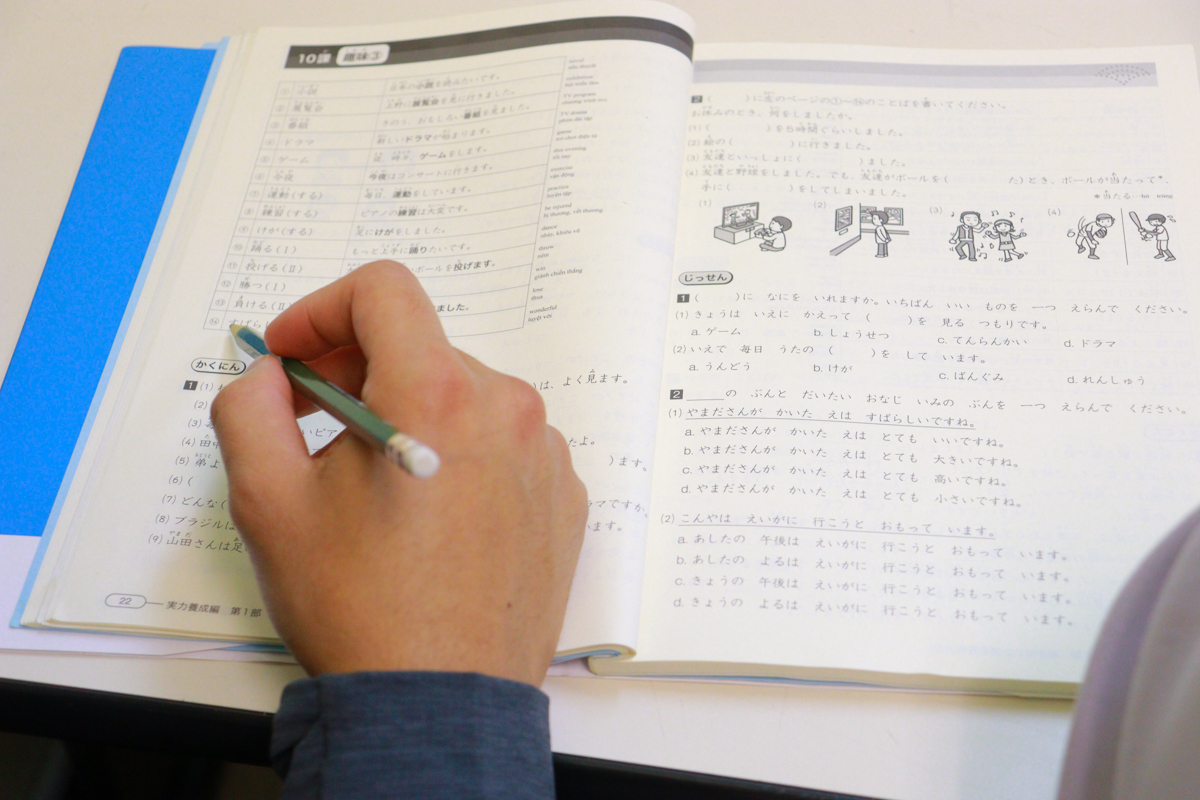 10課 趣味③
① 小説 日本の小説を読みたいです。 novel
tiểu thuyết
② 展覧会 上野に展覧会を見に行きました。 exhibition
③ 番組 きのう、おもしろい番組を見ました。 TV program
chương trình
④ ドラマ 新しいドラマが始まります。 TV drama
⑤ ゲーム ゲームをします。 game
⑥ 今夜 今夜はコンサートに行きます。 this evening
tối nay
⑦ 運動(する) 毎日、運動をしています。 exercise
vận động
⑧ 練習(する) ピアノの練習は大変です。 practice
luyện tập
⑨ けが(する) 足にけがをしました。 be injured
bị thương, vết thương
⑩ 踊る(Ⅰ) もっと上手に踊りたいです。 dance
nhảy, khiêu vũ
⑪ 投げる(Ⅱ) ボールを投げます。 throw
ném
⑫ 勝つ(Ⅰ) win
giành chiến thắng
⑬ 負ける(Ⅱ) ました。 lose
thua
⑭ すばら wonderful
tuyệt vời
かくにん
1 (1) )は、よく見ます。
(2)
(3) いピア
(4) 田中 たよ。
(5) 弟よ )ます。
(6) (
(7) どんな( ラマですか。
(8) ブラジルは います。
(9) 山田さんは足
22 実力養成編 第1部
2 ( )に左のページの①～⑭のことばを書いてください。
お休みのとき、何をしましたか。
(1) ( )を5時間ぐらいしました。
(2) 絵の( )に行きました。
(3) 友達といっしょに( )ました。
(4) 友達と野球をしました。でも、友達がボールを( た)とき、ボールが当たって*、
手に( )をしてしまいました。
*当たる
(1) (2) (3) (4)
じっせん
1 ( )に なにを いれますか。いちばん いい ものを 一つ えらんで ください。
(1) きょうは いえに かえって ( )を 見る つもりです。
a. ゲーム b. しょうせつ c. てんらんかい d. ドラマ
(2) いえで 毎日 うたの ( )を して います。
a. うんどう b. けが c. ばんぐみ d. れんしゅう
2 ＿＿＿の ぶんと だいたい おなじ いみの ぶんを 一つ えらんで ください。
(1) やまださんが かいた えは すばらしいですね。
a. やまださんが かいた えは とても いいですね。
b. やまださんが かいた えは とても 大きいですね。
c. やまださんが かいた えは とても 高いですね。
d. やまださんが かいた えは とても 小さいですね。
(2) こんやは えいがに 行こうと おもって います。
a. あしたの 午後は えいがに 行こうと おもって います。
b. あしたの よるは えいがに 行こうと おもって います。
c. きょうの 午後は えいがに 行こうと おもって います。
d. きょうの よるは えいがに 行こうと おもって います。